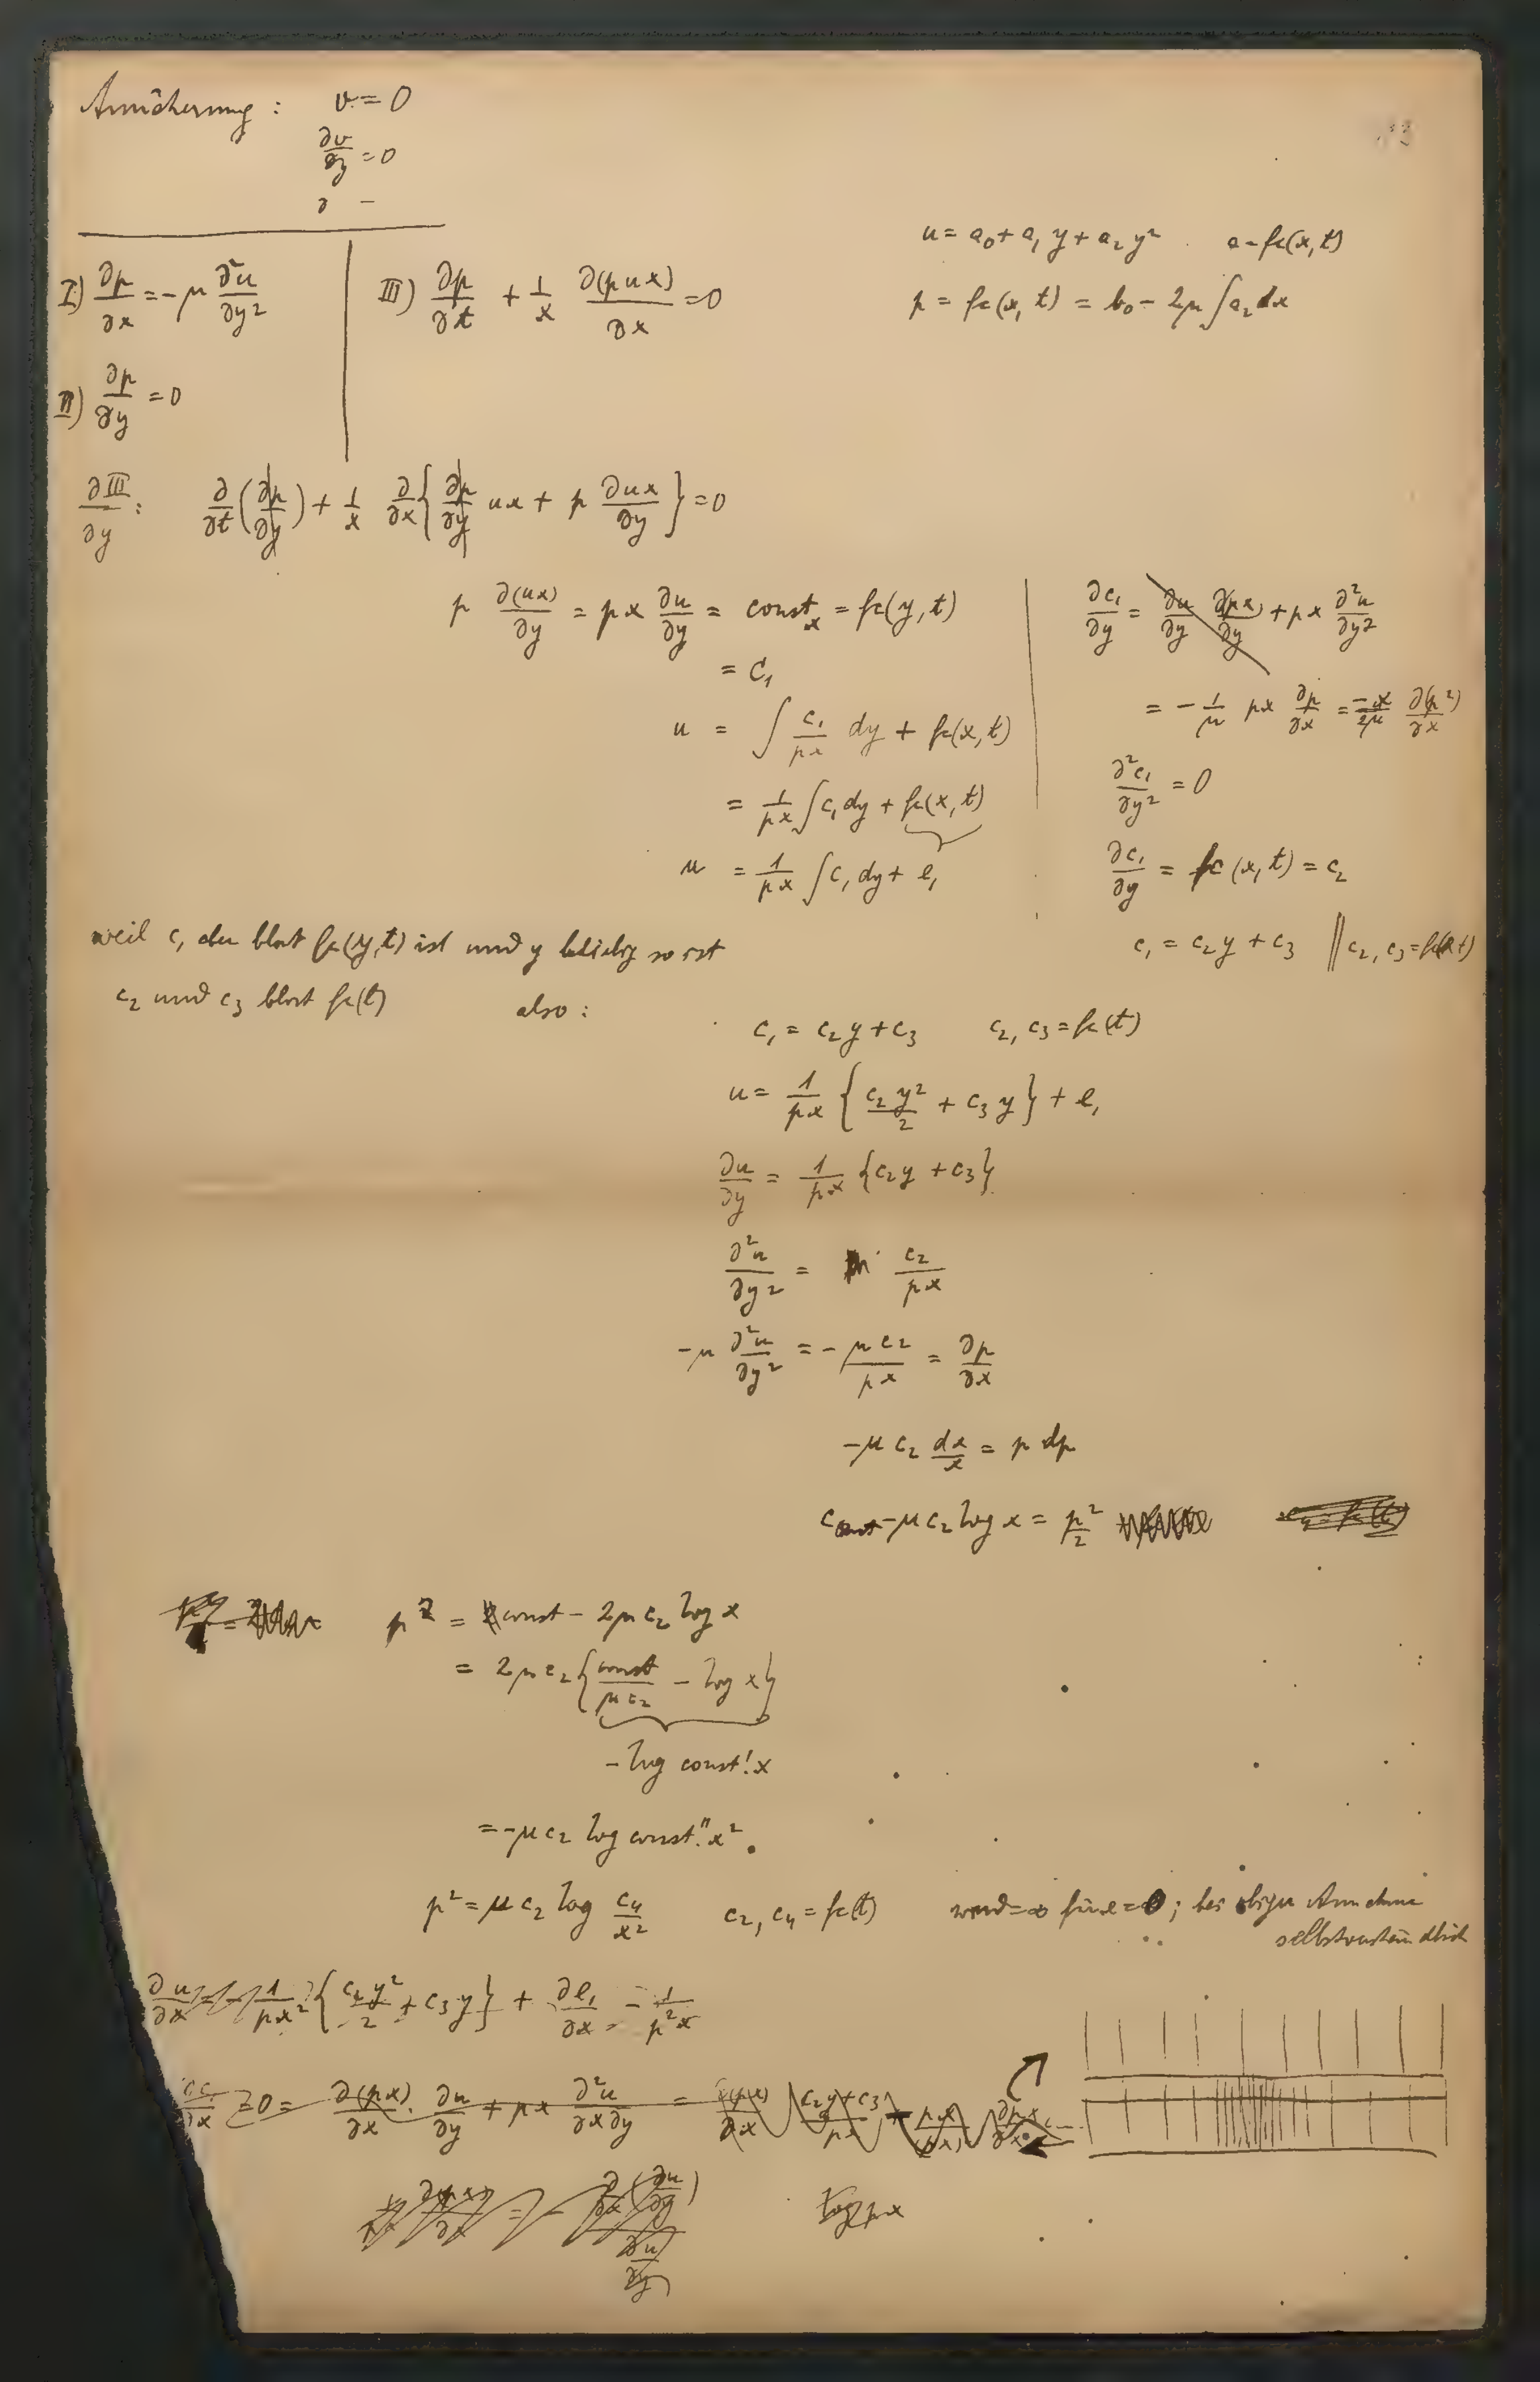 Annäherung : v = 0
∂v/∂y = 0
∂ –
u = a₀ + a₁ y + a₂ y² a = fc(x, t)
I) ∂p/∂x = -μ ∂²u/∂y²
III) ∂p/∂t + 1/x ∂(pux)/∂x = 0
p = fc(x, t) = b₀ - 2μ ∫ a₂ dx
II) ∂p/∂y = 0
∂III/∂y : ∂/∂t (∂p/∂y) + 1/x ∂/∂x { ∂p/∂y ux + p ∂ux/∂y } = 0
p ∂(ux)/∂y = px ∂u/∂y = constₓ = fc(y, t)
= C₁
u = ∫ c₁/px dy + fc(x, t)
= 1/px ∫ c₁ dy + fc(x, t)
u = 1/px ∫ c₁ dy + e₁
∂c₁/∂y = ∂u/∂y ∂(px)/∂y + px ∂²u/∂y²
= - 1/μ px ∂p/∂x = -x/2μ ∂(p²)/∂x
∂²c₁/∂y² = 0
∂c₁/∂y = fc (x, t) = c₂
c₁ = c₂ y + c₃ || c₂, c₃ = fc(x t)
weil c₁ der blos fc(y, t) ist und y beliebig so ist
c₂ und c₃ blos fc(t) also :
c₁ = c₂ y + c₃ c₂, c₃ = fc(t)
u = 1/px { c₂ y²/2 + c₃ y } + e₁
∂u/∂y = 1/px { c₂ y + c₃ }
∂²u/∂y² = c₂/px
-μ ∂²u/∂y² = - μ c₂/px = ∂p/∂x
-μ c₂ dx/x = p dp
const - μ c₂ log x = p²/2
p² = const - 2μ c₂ log x
= 2μ c₂ { const/μ c₂ - log x }
- log const.' x
= -μ c₂ log const." x² .
p² = μ c₂ log c₄/x² c₂, c₄ = fc(t) wird = ∞ für x = 0 ; bei obiger Annahme
selbstverständlich
∂u/∂x = - 1/px² { c₂ y²/2 + c₃ y } + ∂e₁/∂x - 1/p²x
∂c₁/∂x = 0 = ∂(px)/∂x . ∂u/∂y + px ∂²u/∂x∂y = ∂(px)/∂x c₂y + c₃/px
log px